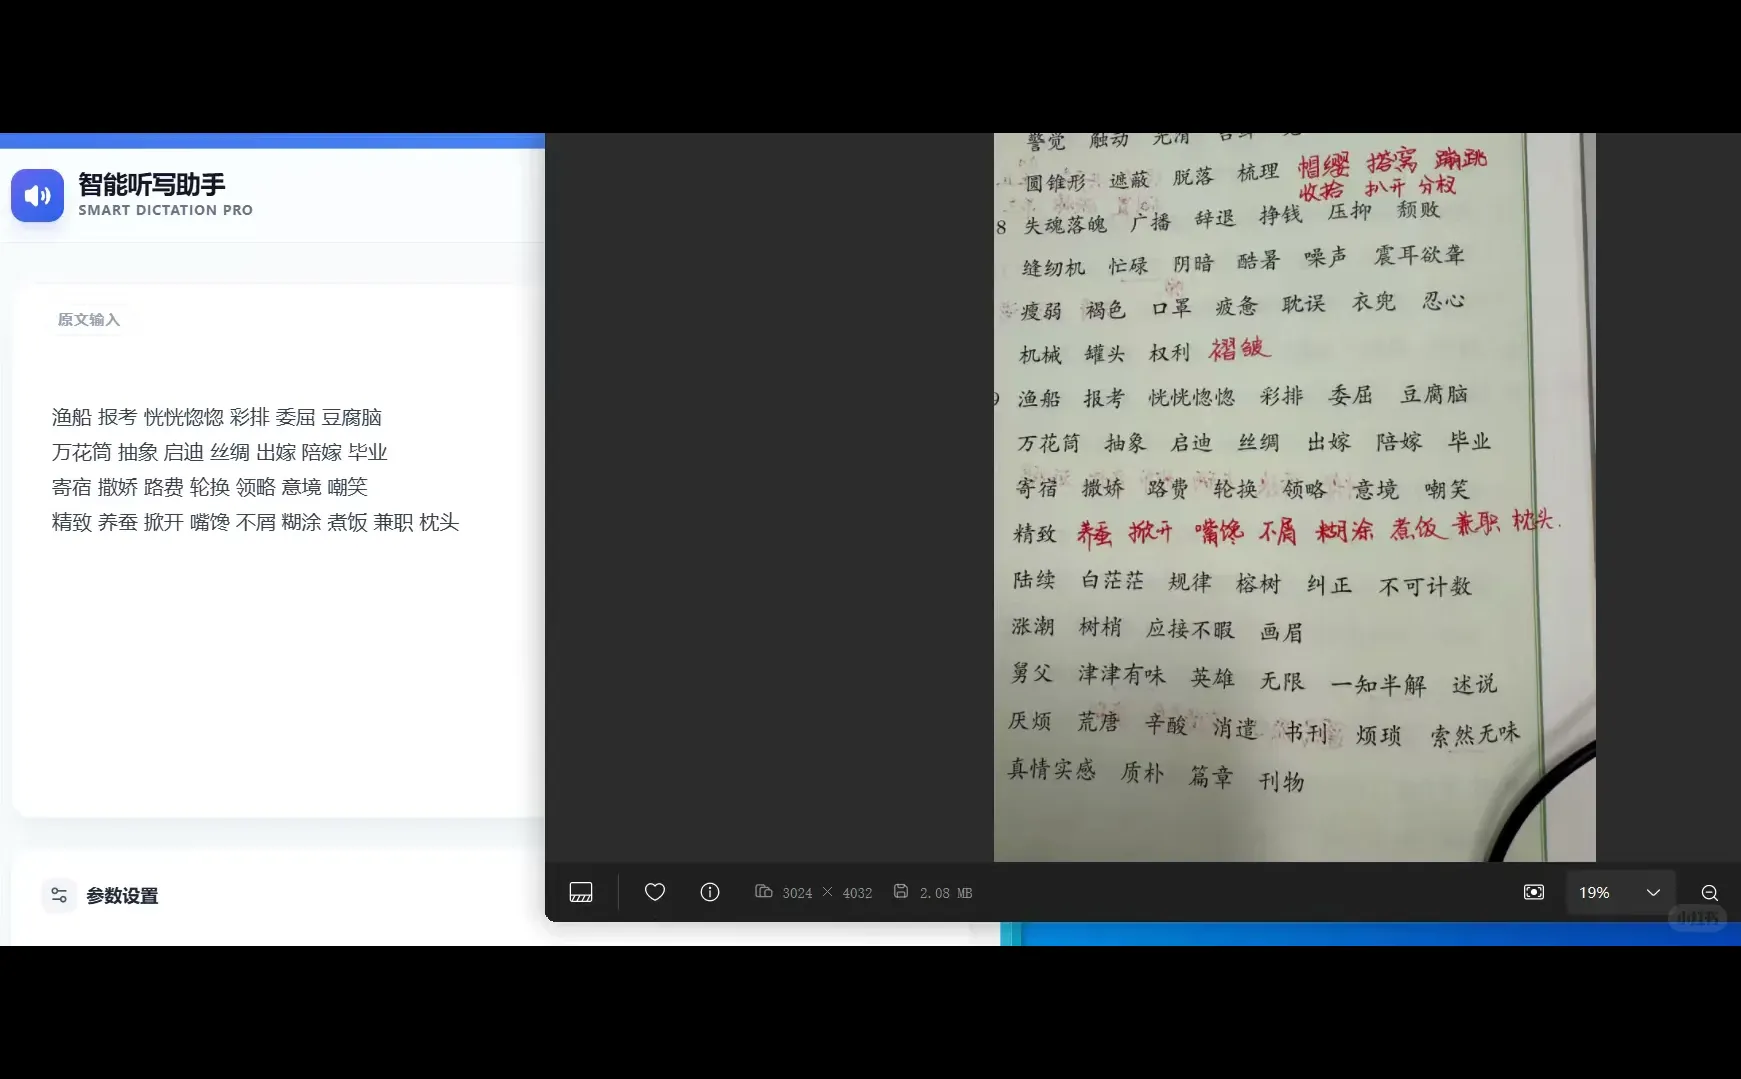 智能听写助手
SMART DICTATION PRO
原文输入
渔船 报考 恍恍惚惚 彩排 委屈 豆腐脑
万花筒 抽象 启迪 丝绸 出嫁 陪嫁 毕业
寄宿 撒娇 路费 轮换 领略 意境 嘲笑
精致 养蚕 掀开 嘴馋 不屑 糊涂 煮饭 兼职 枕头
参数设置
警觉 触动 光滑
圆锥形 遮蔽 脱落 梳理 帽缨 搭窝 蹦跳
收拾 扒开 分杈
8 失魂落魄 广播 辞退 挣钱 压抑 颓败
缝纫机 忙碌 阴暗 酷暑 噪声 震耳欲聋
瘦弱 褐色 口罩 疲惫 耽误 衣兜 忍心
机械 罐头 权利 褶皱
9 渔船 报考 恍恍惚惚 彩排 委屈 豆腐脑
万花筒 抽象 启迪 丝绸 出嫁 陪嫁 毕业
寄宿 撒娇 路费 轮换 领略 意境 嘲笑
精致 养蚕 掀开 嘴馋 不屑 糊涂 煮饭 兼职 枕头.
陆续 白茫茫 规律 榕树 纠正 不可计数
涨潮 树梢 应接不暇 画眉
舅父 津津有味 英雄 无限 一知半解 述说
厌烦 荒唐 辛酸 消遣 书刊 烦琐 索然无味
真情实感 质朴 篇章 刊物
3024 × 4032 2.08 MB
19%
小红书